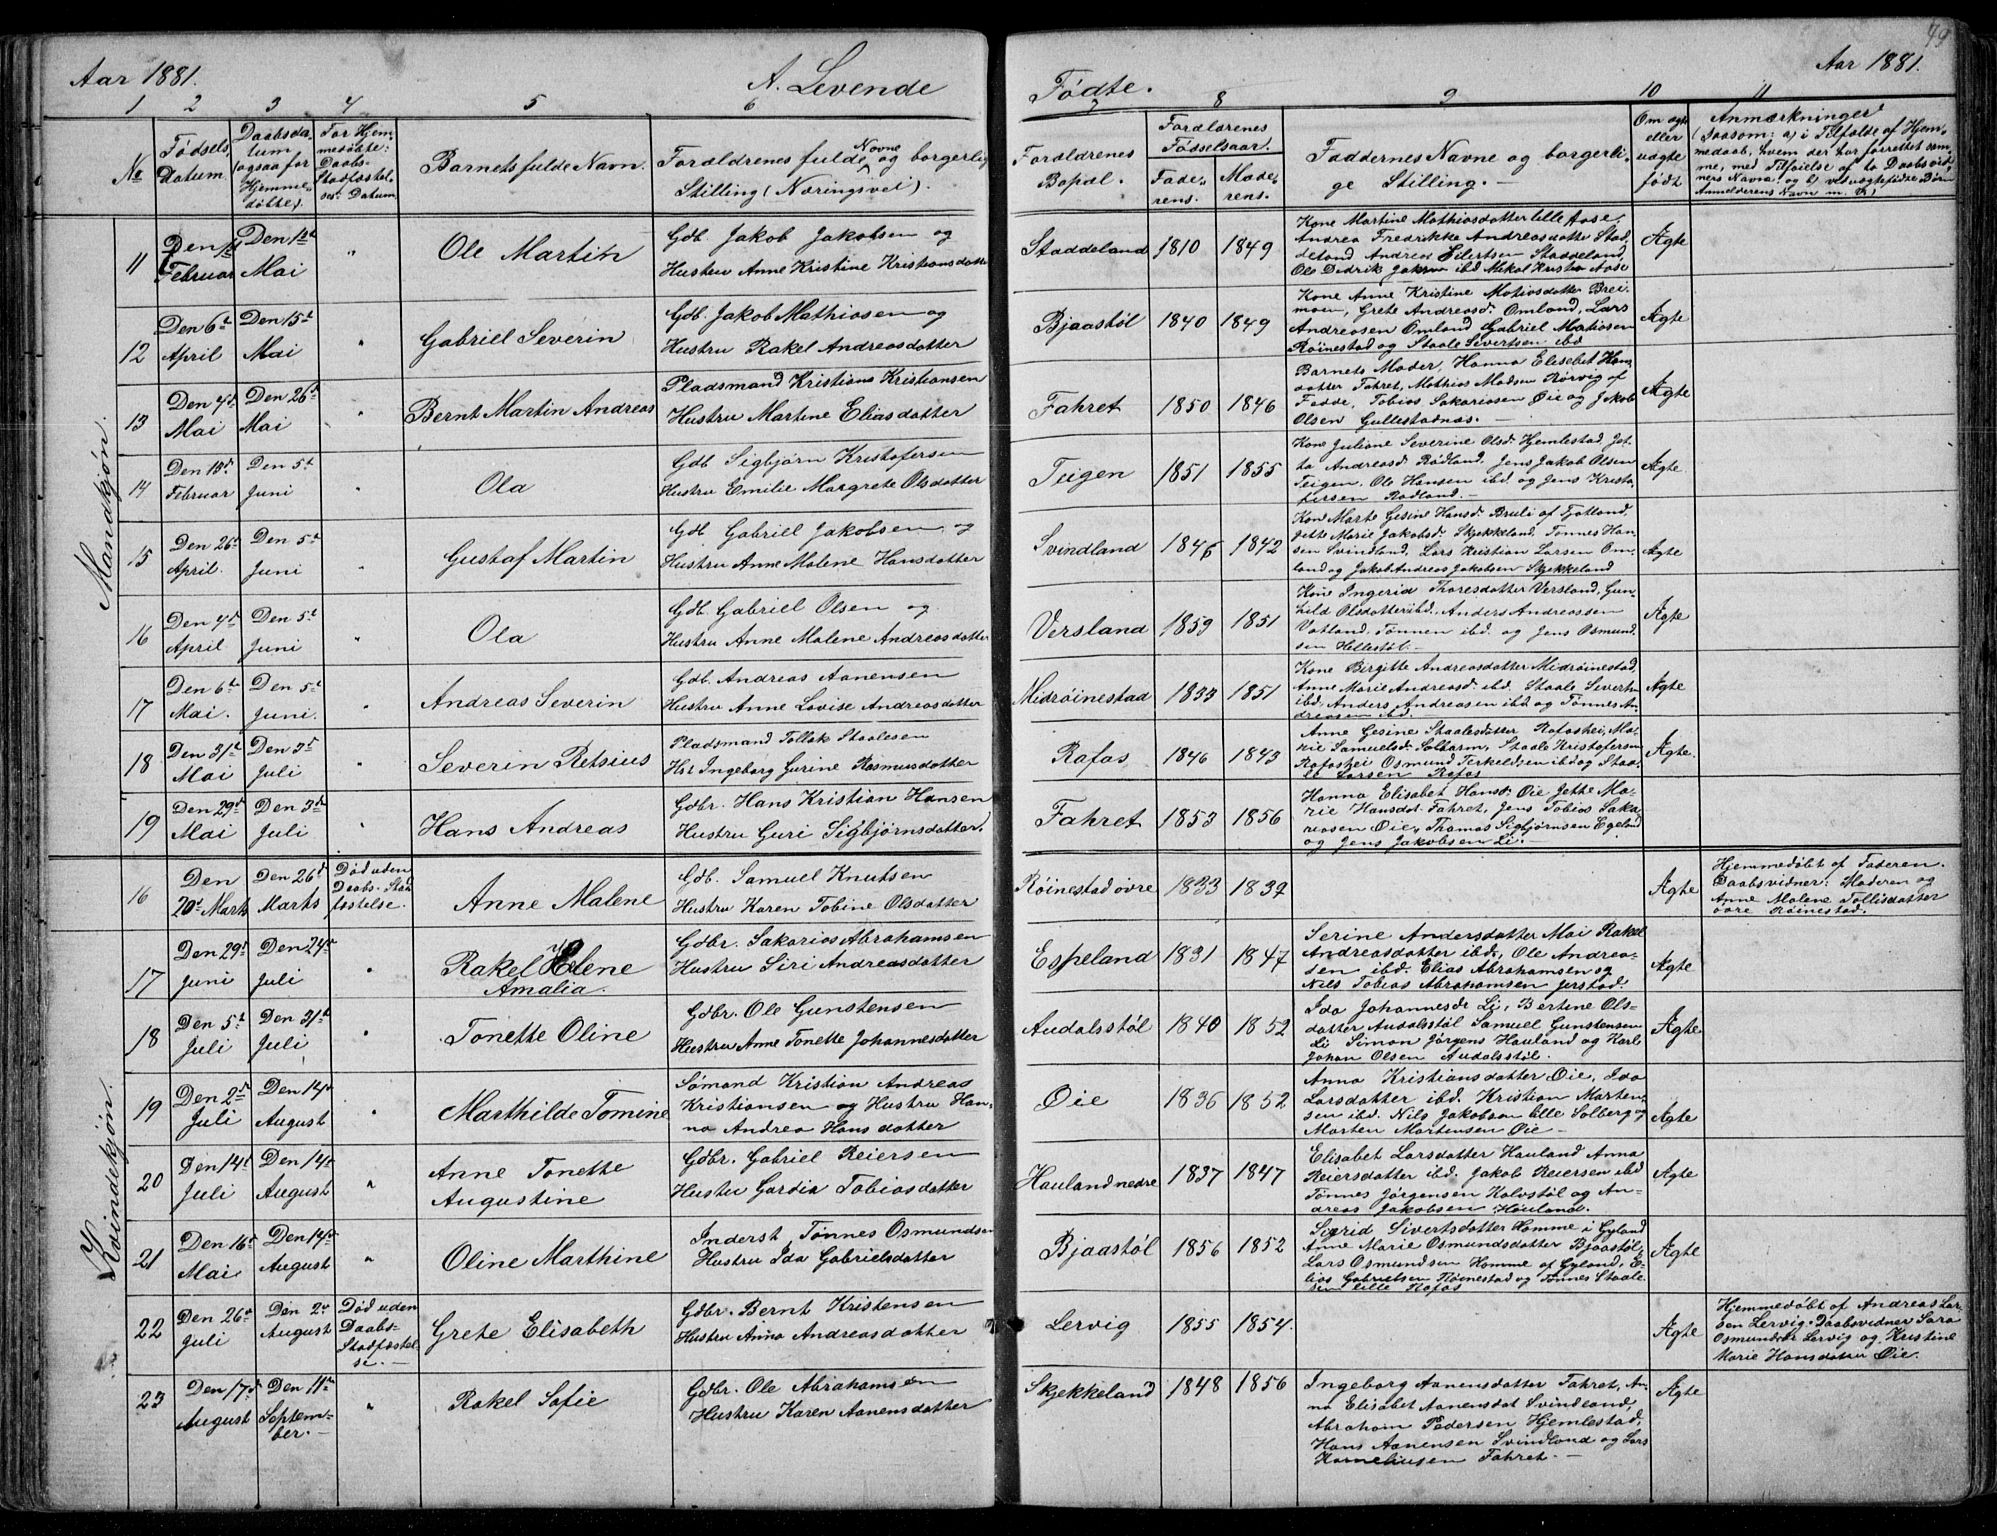 49
Aar 1881.
A. Levende
Fødte.
Aar 1881.
1 2 3 4 5 6 7 8 9 10 11
No
Fødsels,
datum.
Daabsda-
tum
(ogsaa for
Hjemme-
døbte).
For Hjem-
medøbte:
Daabs-
Stadfæstel-
ses Datum.
Barnets fulde Navn.
Forældrenes fulde Navne og borgerlig
Stilling (Næringsvei).
Forældrenes
Bopæl.
Forældrenes
Fødselsaar.
Fade-
rens.
Mode-
rens.
Faddernes Navne og borgerli-
ge Stilling.
Om ægte
eller
uægte
født
Anmærkninger
(saasom: a) i Tilfælde af Hjem-
medaab, hvem der har forrettet sam-
me, med Tilføielse af to Daabsvid-
ners Navn og b) ved uægtefødte Børn
Anmelderens Navn m. V.)
Mandkjøn.
11
Februar
Den 1ste
Mai
"
Ole Martin
Gdb. Jakob Jakobsen og
Hustru Anne Kristine Kristiansdatter
Staddeland
1810
1849
Kone Martine Mathiasdatter lille Aase,
Andrea Fredrikke Andreasdatter Stad-
deland Andreas Eilertsen Staddeland,
Ægte
12
Den 6te
April
Den 15de
Mai
"
Gabriel Severin
Gdb. Jakob Mathiasen og
Hustru Rakel Andreasdatter
Bjaastøl
1840
1849
Kone Anne Kristine Matiasdatter Brei-
moen, Grete Andreasd. Omland, Lars
Andreasen Omland Gabriel Matiasen
Røinestad og Staale Severtsen ibd
Ægte
13
Den 4de
Mai
Den 26de
Mai
"
Bernt Martin Andreas
Pladsmand Kristians Kristiansen
Hustru Martine Eliasdatter
Fahret
1850
1846
Barnets Moder, Hanna Elisebet Hans-
datter Fahret, Mathias Madsen Rørvig af
Fedde, Tobias Sakariasen Øie og Jakob
Olsen Gullestadnæs.
Ægte
14
Den 15de
Februar
Den 5te
Juni
"
Ola
Gdb Sigbjørn Kristofersen
Hustru Emilie Margrete Olsdatter
Teigen
1851
1855
Kone Juliane Severine Olsd. Hjemlestad, Jot-
ta Andreasd. Rødland, Jens Jakob Olsen
Teigen, Ole Hansen ibd. og Jens Kristo-
fersen Rødland.
Ægte
15
Den 26de
April.
Den 5te
Juni
"
Gustaf Martin
Gdb. Gabriel Jakobsen og
Hustru Anne Malene Hansdatter
Svindland
1846
1842
Kone Marte Gesine Hansd. Bruli af Fjotland,
Jette Marie Jakobsd. Skjekkeland, Tønnes Han-
sen Svindland, Lars Kristian Larsen Om-
land og Jakob Andreas Jakobsen Skjekkeland
Ægte
16
Den 4de
April
Den 5te
Juni
"
Ola
Gdb. Gabriel Olsen og
Hustru Anne Malene Andreasdatter
Versland
1859
1851
Kone Ingerid Thoresdatter Versland, Gun-
hild Olsdatter ibd., Anders Andreassen
Vatland, Tønnen ibd. og Jens Osmund-
sen Hellestøl.
Ægte
17
Den 6te
Mai.
Den 5te
Juni.
"
Andreas Severin
Gdb. Andreas Aanensen
Hustru Anne Lovise Andreasdatter
Midrøinestad
1833
1851
Kone Birgitte Andreasdatter Midrøinestad,
Anne Marie Andreasd. ibd. Staale Severtsn
ibd. Anders Andreasen ibd og Tønnes An-
dreasen ibd.
Ægte
18
Den 31te
Mai
Den 3de
Juli
"
Severin Retsius
Pladsmand Tollak Staalesen
Hst Ingeborg Gurine Rasmusdatter
Rafos
1846
1843
Anne Gesine Staalesdatter Rafoshei, Ma-
rie Samuelsd. Solbarm, Staale Kristofersen
Rafoshei Osmund Terkeldsen ibd og Staa-
le Larsen Rafos
Ægte.
19
Den 29de
Mai
Den 3de
Juli
"
Hans Andreas
Gdbr. Hans Kristian Hansen
Hustru Guri Sigbjørnsdatter.
Fahret
1853
1856
Hanna Elisabet Hansd. Øie Jette Ma-
rie Hansdat. Fahret, Jens Tobias Saka-
riasen Øie, Thomas Sigbjørnsen Egeland
og Jens Jakobsen Li.
Kvindekjøn.
16
Den
20de Marts
Den 26de
Marts
Død uden
Daabs-Stad-
fæstelse.
Anne Malene
Gdb. Samuel Knutsen
Hustru Karen Tobine Olsdatter
Røinestad øvre
1833
1837
Ægte
Hjemmedøbt af Faderen.
Daabsvidner: Moderen og
Anne Malene Tollisdatter
øvre Røinestad.
17
Den 29de
Juni
Den 24de
Juli
"
Rakel Helene
Amalia.
Gdbr. Sakarias Abrahamsen
Hustru Siri Andreasdatter
Espeland
1831
1847
Serine Andersdatter Moi Rakel
Andreasdatter ibd., Ole Andrea-
sen ibd. Elias Abrahamsen og
Nils Tobias Abrahamsen Jerstad.
Ægte
18
Den 5te
Juli
Den 31te
Juli
"
Tonette Oline
Gdbr. Ole Gunstensen
Hustru Anne Tonette Johannesdatter
Audalsstøl
1840
1852
Ida Johannesdr Li, Bertine Ols-
datter Audalsstøl Samuel Gunstensen
Li Simon Jørgens Hauland og Karl
Johan Olsen Audalsstøl.
Ægte
19
Den 2den
Juli
Den 14de
August
"
Marthilde Tomine
Sømand Kristian Andreas
Kristiansen og Hustru Han-
na Andrea Hansdatter
Øie
1836
1852
Anna Kristiansdatter Øie, Ida
Larsdatter ibd. Kristian Marten-
sen ibd. Nils Jakobsen lille Solberg og
Marten Martensen Øie
Ægte
20
Den 14de
Juli
Den 14de
August
"
Anne Tonette
Augustine
Gdbr. Gabriel Reiersen
Hustru Gardia Tobiasdatter
Hauland nedre
1837
1847
Elisabet Larsdatter Hauland Anna
Reiersdatter ibd. Jakob Reiersen ibd
Tønnes Jørgensen Kalvstøl og An-
dreas Jakobsen Hauland.
Ægte
21
Den 16de
Mai
Den 14de
August
"
Oline Marthine
Inderst Tønnes Osmundsen
Hustru Ida Gabrielsdatter
Bjaastøl
1856
1852
Sigrid Sivertsdatter Homme i Gyland
Anne Marie Osmundsdatter Bjaastøl,
Lars Osmundsen Homme af Gyland, E-
lias Gabrielsen Røinestad og Tønnes Staale-
sen lille Rafos
Ægte
22
Den 26de
Juli
Den 2den
August
Død uden
Daabs-
Stadfæstel-
se.
Grete Elisabeth
Gdbr. Bernt Kristensen
Hustru Anna Andreasdatter
Lervig
1855
1854.
Ægte
Hjemmedøbt af Andreas Lar-
sen Lervig. Daabsvidner Sara
Osmundsdr Lervig og Kristine
Marie Hansdatter Øie.
23
Den 17de
August
Den 11te
Septem-
ber.
"
Rakel Sofie
Gdbr. Ole Abrahamsen
Hustru Karen Aanensdatter
Skjekkeland
1848
1856
Ingeborg Aanensdatter Fahret, An-
na Elisabet Aanensdat Svindland,
Abraham Pedersen Hjemlestad,
Hans Aanensen Svindland og Lars
Korneliusen Fahret.
Ægte